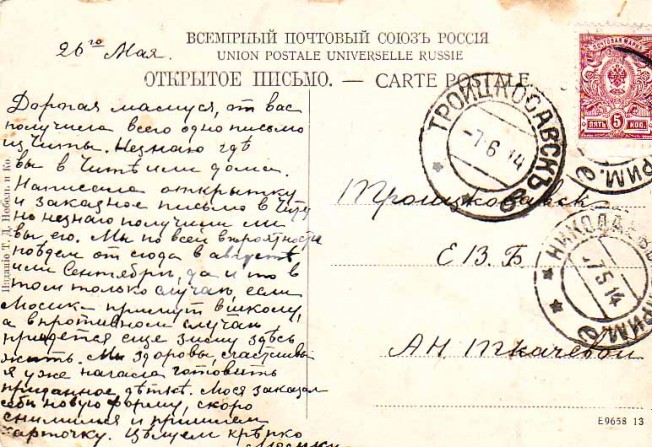 ВСЕМІРНЫЙ ПОЧТОВЫЙ СОЮЗЪ РОССІЯ
UNION POSTALE UNIVERSELLE RUSSIE
ОТКРЫТОЕ ПИСЬМО. — CARTE POSTALE
26го Мая.
Дорогая мамуся, от вас
получила всего одно письмо
из Читы. Незнаю где
вы в Чите или дома.
Написала открытку
и заказное письмо в Читу
но незнаю получили ли
вы его. Мы по всей вероятности
поедем от сюда в августе
или Сентябры, да и то в
том только случаи, если
Мосика примут в школу,
а в противном случаи
придется еще зиму здесь
жить. Мы здоровы, счастливы
я уже начала готовить
приданное детке. Мося заказал
себи новую форму, скоро
снимимся и пришлем
карточку. Целуем крепко
Троицкосавск
Е. В. Б.
А Н Ткачевой
ТРОИЦКОСАВСКЪ
-7 6 14
НИКОЛАЕВ
-7 5 14
ПРИМ. О
ПОЧТОВАЯ МАРКА
5
ПЯТЬ КОП.
Изданіе Т. Д. Небель и Ко
E9658 13